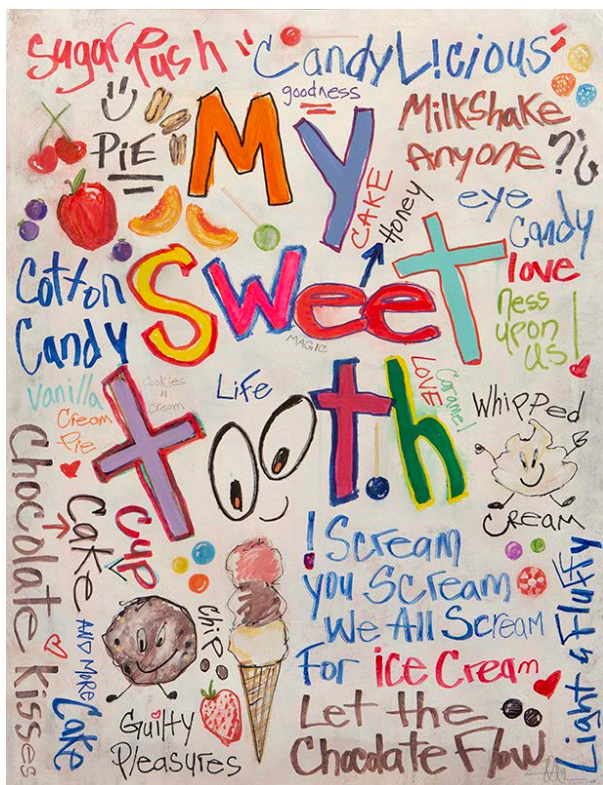 Sugar Rush
"CandyL!cious"
goodness
PiE
My
MilkShake
Anyone?
CAKE
Honey
eye
Candy
love
ness
upon
us!
Cotton
Candy
Sweet
MAGIC
Vanilla
Cream
Pie
Cookies
N
Cream
Life
tooth
LOVE
Caramel
Whipped
CREAM
Chocolate kisses
Cup
Cake
AND MORE
Cake
Chip
Guilty
Pleasures
! Scream
you Scream
We All Scream
For ice Cream
Let the
Chocolate Flow
Light & Fluffy